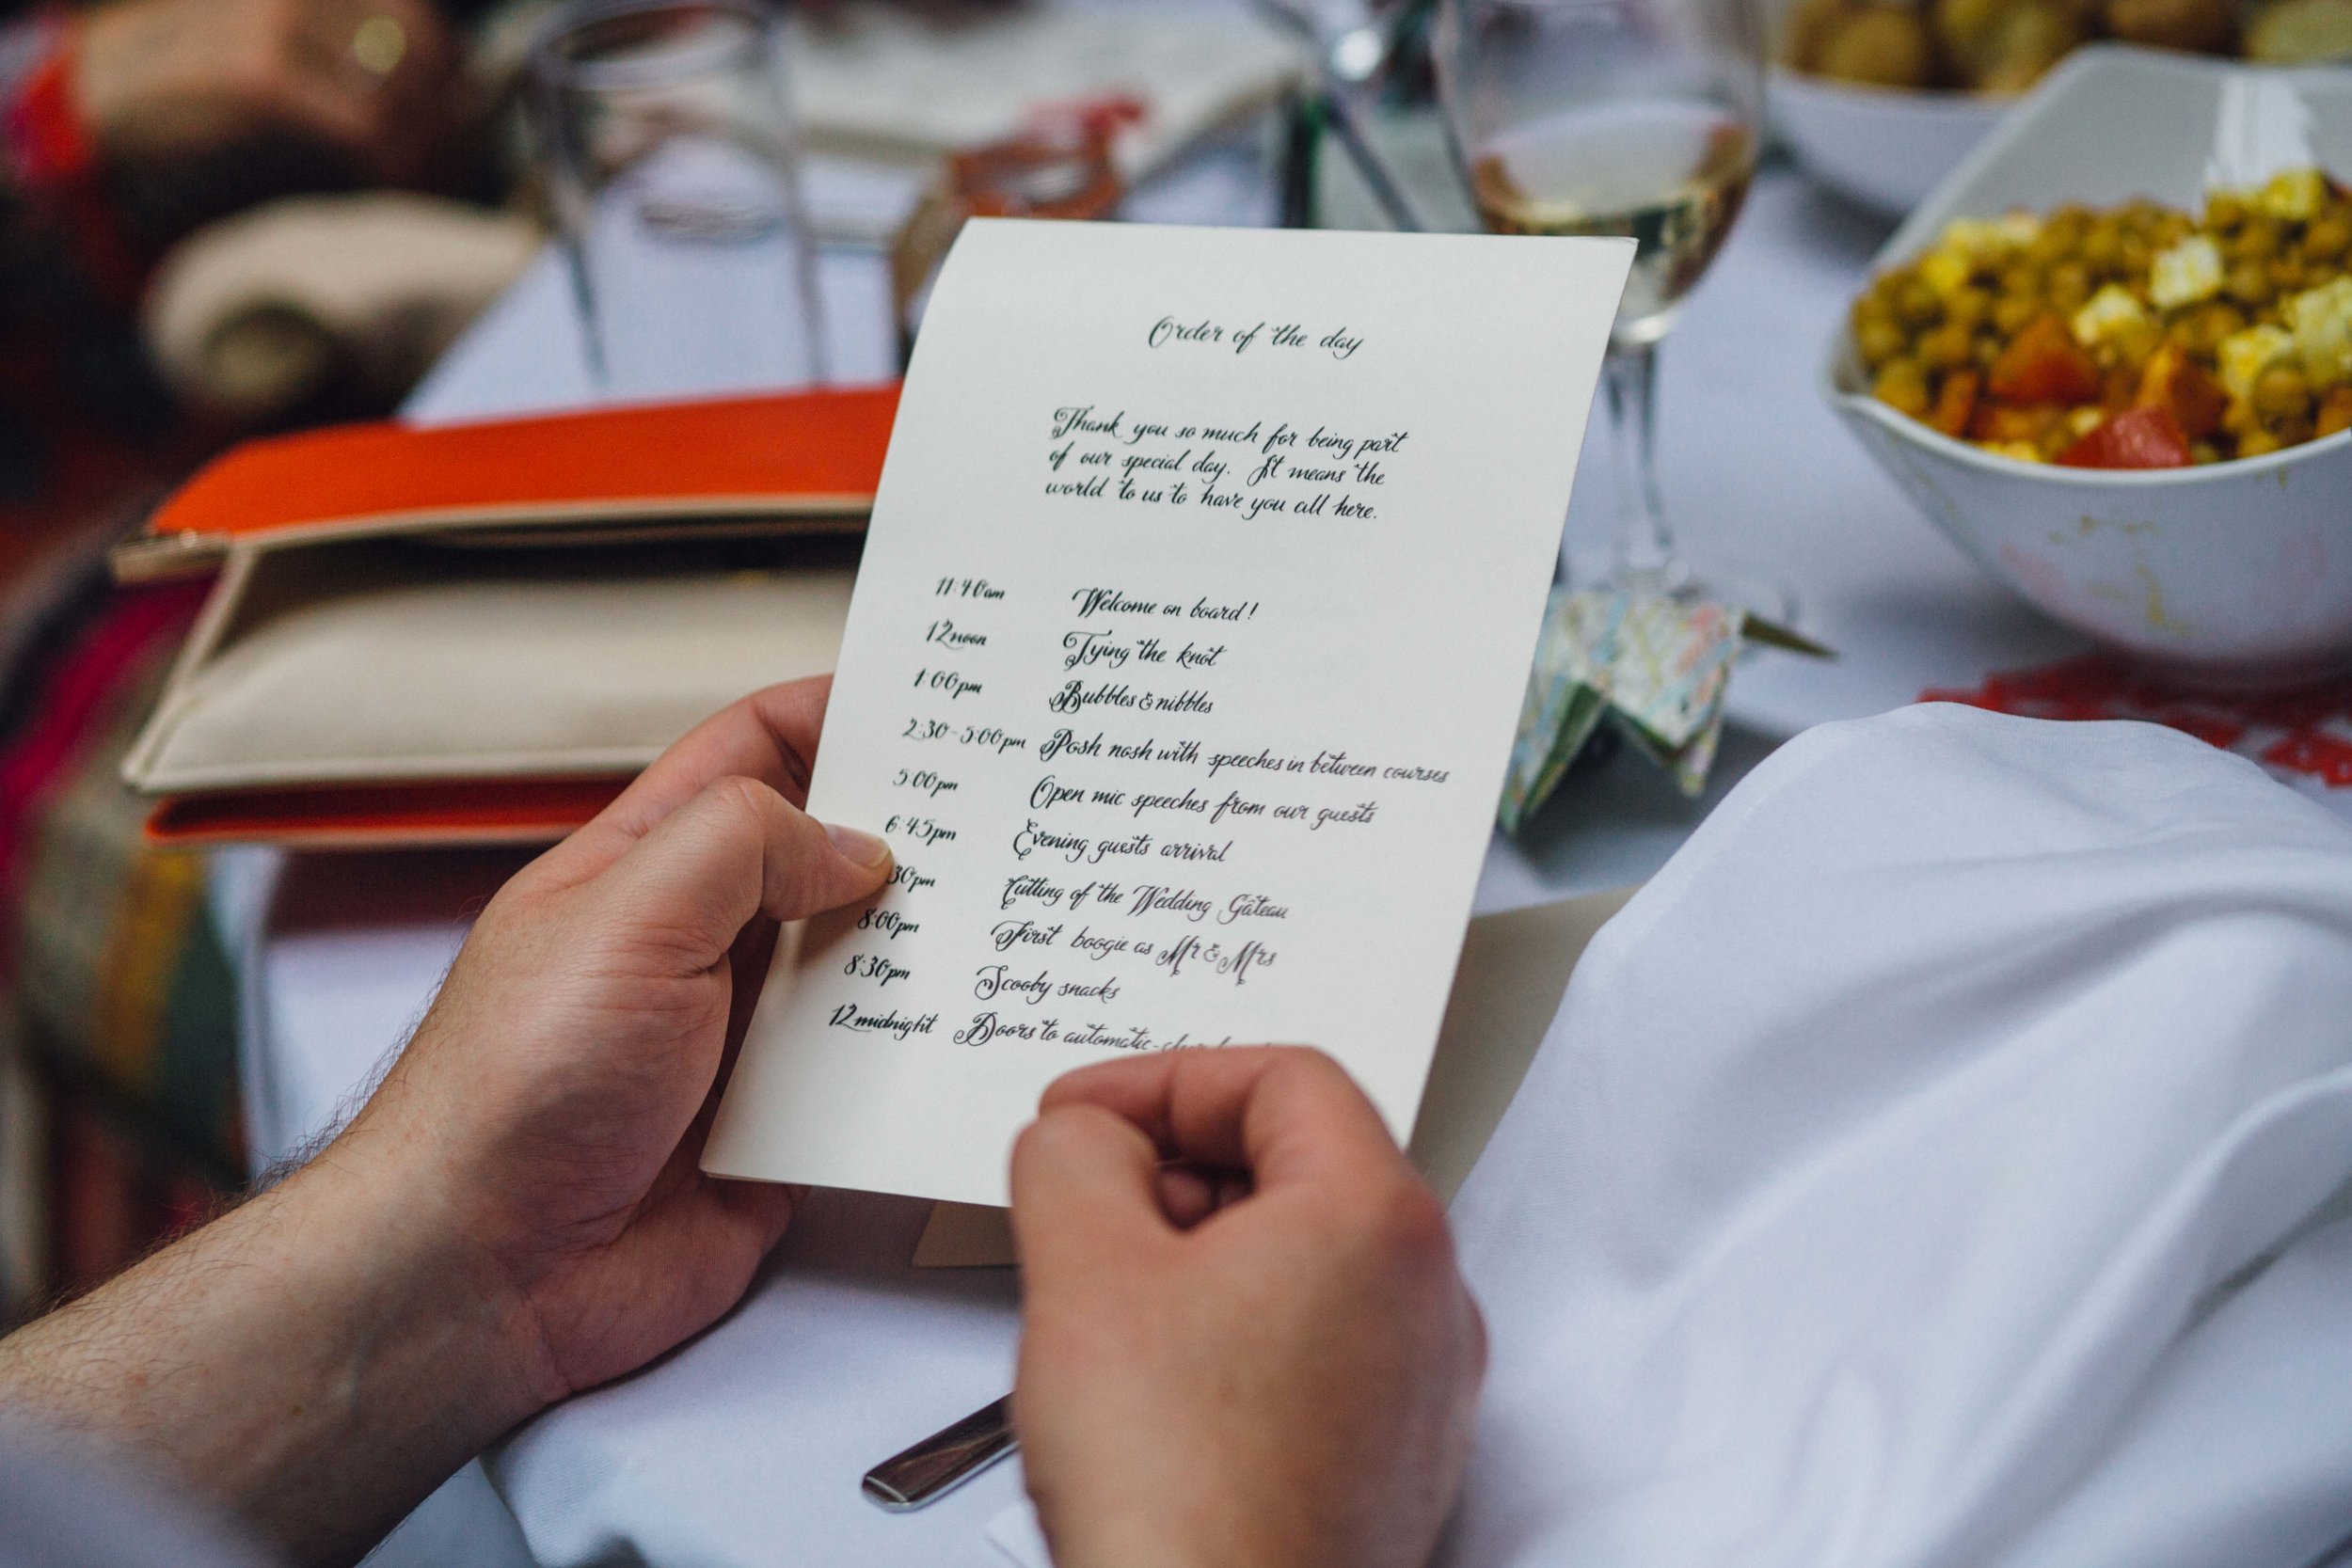 Order of the day
Thank you so much for being part
of our special day. It means the
world to us to have you all here.
11:40am Welcome on board!
12noon Tying the knot
1:00pm Bubbles & nibbles
2:30-5:00pm Posh nosh with speeches in between courses
5:00pm Open mic speeches from our guests
6:45pm Evening guests arrival
30pm Cutting of the Wedding Gateau
8:00pm First boogie as Mr & Mrs
8:30pm Scooby snacks
12midnight Doors to automatic-